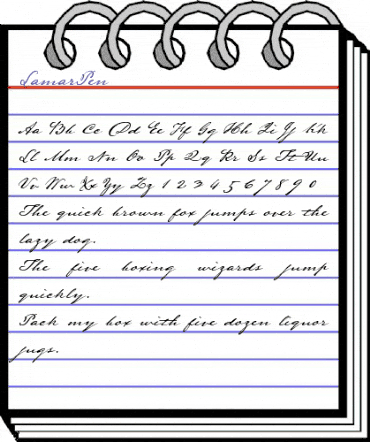 LamarPen
Aa Bb Cc Dd Ee Ff Gg Hh Ii Jj Kk
Ll Mm Nn Oo Pp Qq Rr Ss Tt Uu
Vv Ww Xx Yy Zz 1 2 3 4 5 6 7 8 9 0
The quick brown fox jumps over the
lazy dog.
The five boxing wizards jump
quickly.
Pack my box with five dozen liquor
jugs.